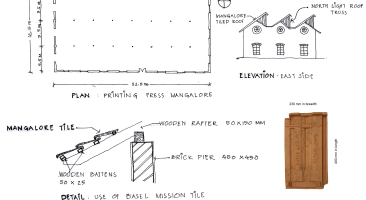 NORTH LIGHT ROOF
TRUSS
MANGALORE
TILED ROOF
ELEVATION - EAST SIDE
PLAN : PRINTING PRESS MANGALORE
MANGALORE TILE
WOODEN RAFTER 50X150 MM
BRICK PIER 450 X 450
WOODEN BATTENS
50 X 25
DETAIL : USE OF BASEL MISSION TILE